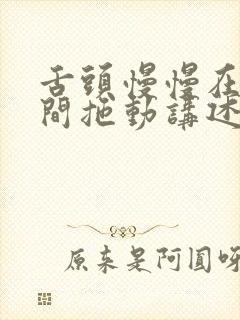 舌頭慢慢在
間拖動講述
原來是阿圓呀